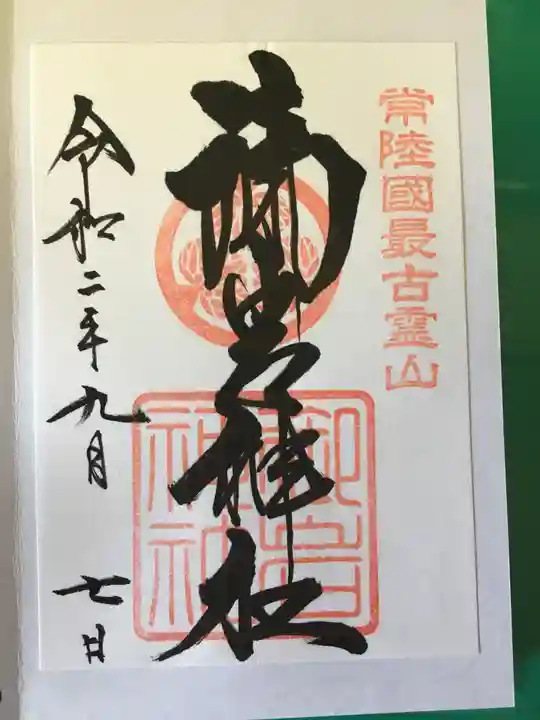 常陸國最古霊山
御岩神社
御岩神社
令和二年九月 七日